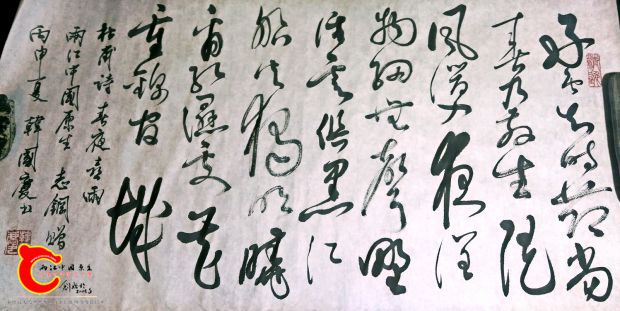 好雨知时節当
春乃发生随
風潜入夜润
物细无声野
径云俱黑江
船火独明晓
看红湿处花
重锦官城
杜甫诗春夜喜雨
兩江中國原生志鋼赠
丙申夏韓國慶书
两江中国原生